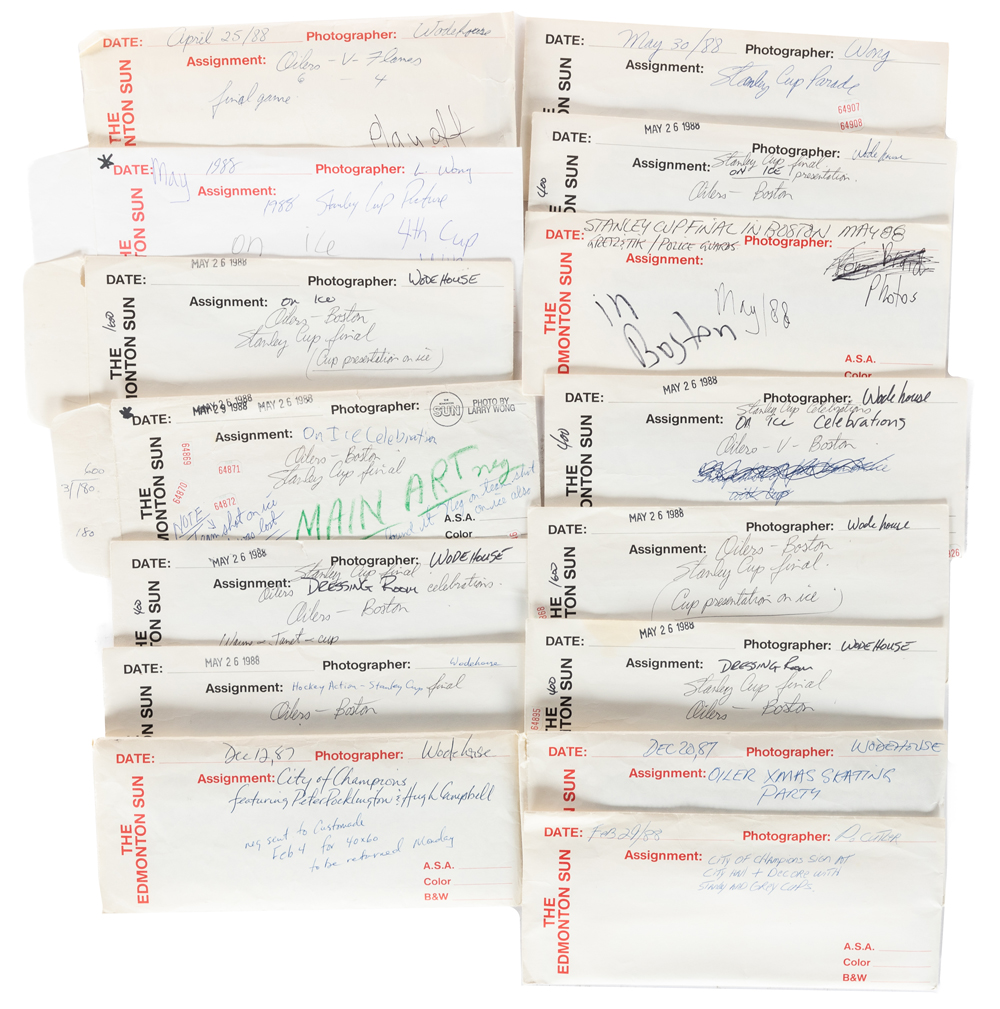 DATE: April 25/88 Photographer: Wodehouse
Assignment: Oilers - V - Flames
6 4
final game
playoff
THE
EDMONTON SUN
* DATE: May 1988 Photographer: L. Wong
Assignment: 1988 Stanley Cup Picture
on ice 4th Cup
MAY 26 1988
DATE: Photographer: WODEHOUSE
Assignment: on Ice
Oilers - Boston
Stanley Cup final
(Cup presentation on ice)
1600
THE
EDMONTON SUN
MAY 26 1988
MAY 29 1988 MAY 26 1988
* DATE: Photographer: THE EDMONTON SUN PHOTO BY LARRY WONG
Assignment: On Ice Celebration
Oilers - Boston
Stanley Cup final
64869
64870
64871
64872
MAIN ART neg
NOTE
Team shot on ice
was lost
found it neg on team shot
on ice also
A.S.A.
Color
600
3/180
180
MAY 26 1988
DATE: Photographer: WODEHOUSE
Stanley Cup final
Assignment: Oilers DRESSING ROOM celebrations.
Oilers - Boston
Wayne - Janet - cup
400
MAY 26 1988
DATE: Photographer: Wodehouse
Assignment: Hockey Action - Stanley Cup final
Oilers - Boston
DATE: Dec 12, 87 Photographer: Wodehouse
Assignment: City of Champions
featuring Peter Pocklington & Hugh Campbell
neg sent to Customade
Feb 4 for 40x60
to be returned Monday
THE
EDMONTON SUN
A.S.A.
Color
B&W
DATE: May 30/88 Photographer: Wong
Assignment: Stanley Cup Parade
64907
64908
MAY 26 1988
DATE: Photographer: Wodehouse
Stanley Cup final
Assignment: ON ICE presentation.
Oilers - Boston
400
DATE: STANLEY CUP FINAL IN BOSTON MAY 88
GRETZKY / POLICE GUARDS Photographer:
Assignment:
Photos
in
Boston
May/88
THE
EDMONTON SUN
A.S.A.
Color
MAY 26 1988
DATE: Photographer: Wodehouse
Stanley Cup Celebrations
Assignment: ON ICE Celebrations
Oilers - V - Boston
400
THE
EDMONTON SUN
MAY 26 1988
DATE: Photographer: Wodehouse
Assignment: Oilers - Boston
Stanley Cup final.
(Cup presentation on ice)
1600
MAY 26 1988
DATE: Photographer: WODEHOUSE
Assignment: DRESSING ROOM
Stanley Cup final
Oilers - Boston
400
64895
DATE: DEC 20, 87 Photographer: WODEHOUSE
Assignment: OILER XMAS SKATING
PARTY
DATE: Feb 29/88 Photographer:
Assignment: CITY OF CHAMPIONS SIGN AT
CITY HALL + DECORE WITH
STANLEY AND GREY CUPS.
THE
EDMONTON SUN
A.S.A.
Color
B&W